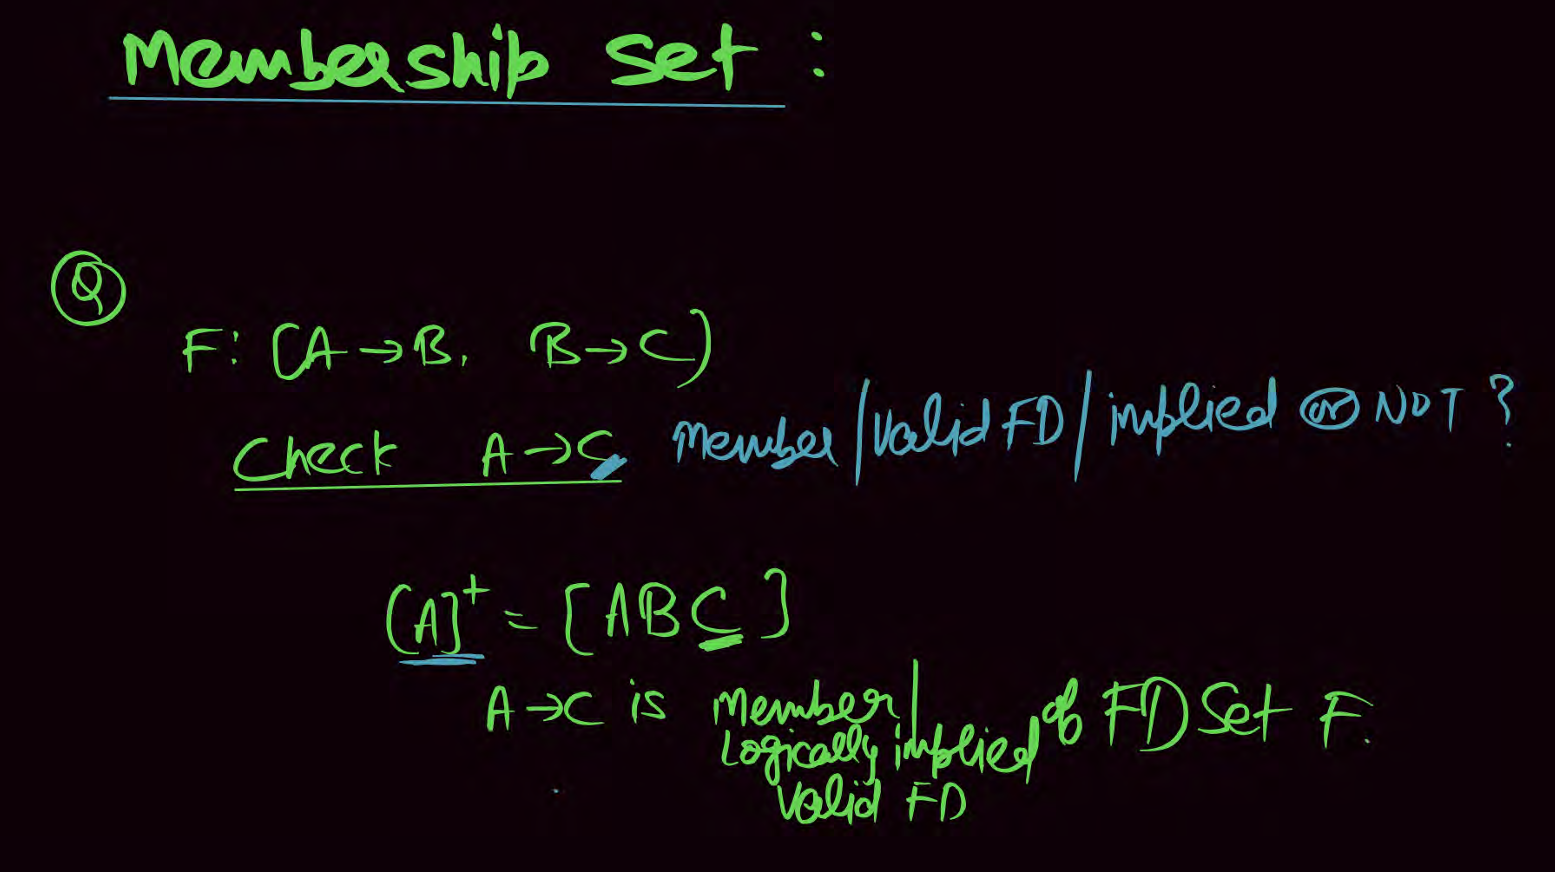 Membership Set :
Q
F: (A → B, B → C)
Check A → C Member/Valid FD/implied or NOT ?
(A]⁺ = [ABC]
A → C is Member/ of FD Set F.
Logically implied
Valid FD